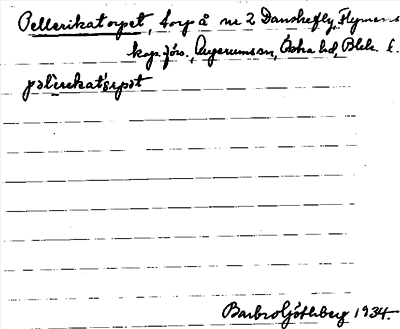 Pellerikatorpet, torp å nr 2 Danskefly, Flymens
kap. förs., Augerums sn, Östra hd, Blek. l.
Barbro Göthberg 1934.